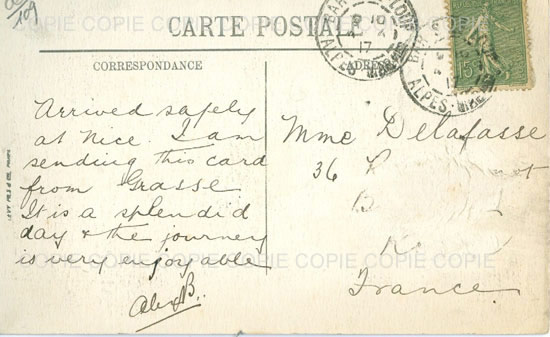 CARTE POSTALE
CORRESPONDANCE
ADRESSE
Arrived safely
at Nice. I am
sending this card
from Grasse
It is a splendid
day & the journey
is very enjoyable
Alex B.
Mme Delafasse
36
France
15
ALPES
17
COPIE COPIE COPIE COPIE COPIE COPIE COPIE